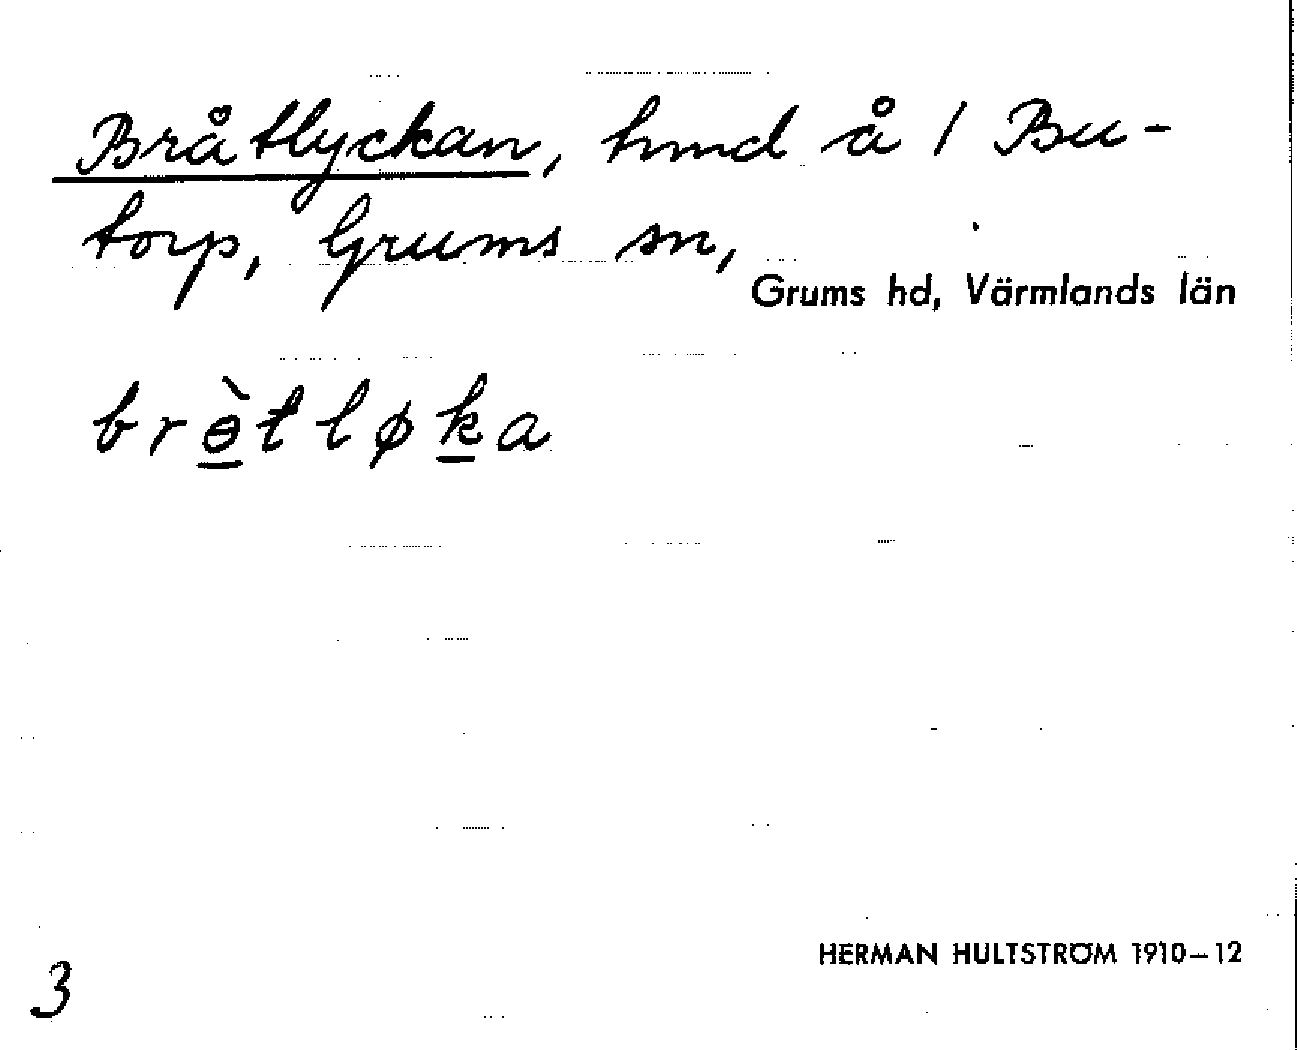 Bråtlyckan, hmd å 1 Bu-
torp, Grums sn,
Grums hd, Värmlands län
brɵ̀tløka
3
HERMAN HULTSTRÖM 1910–12